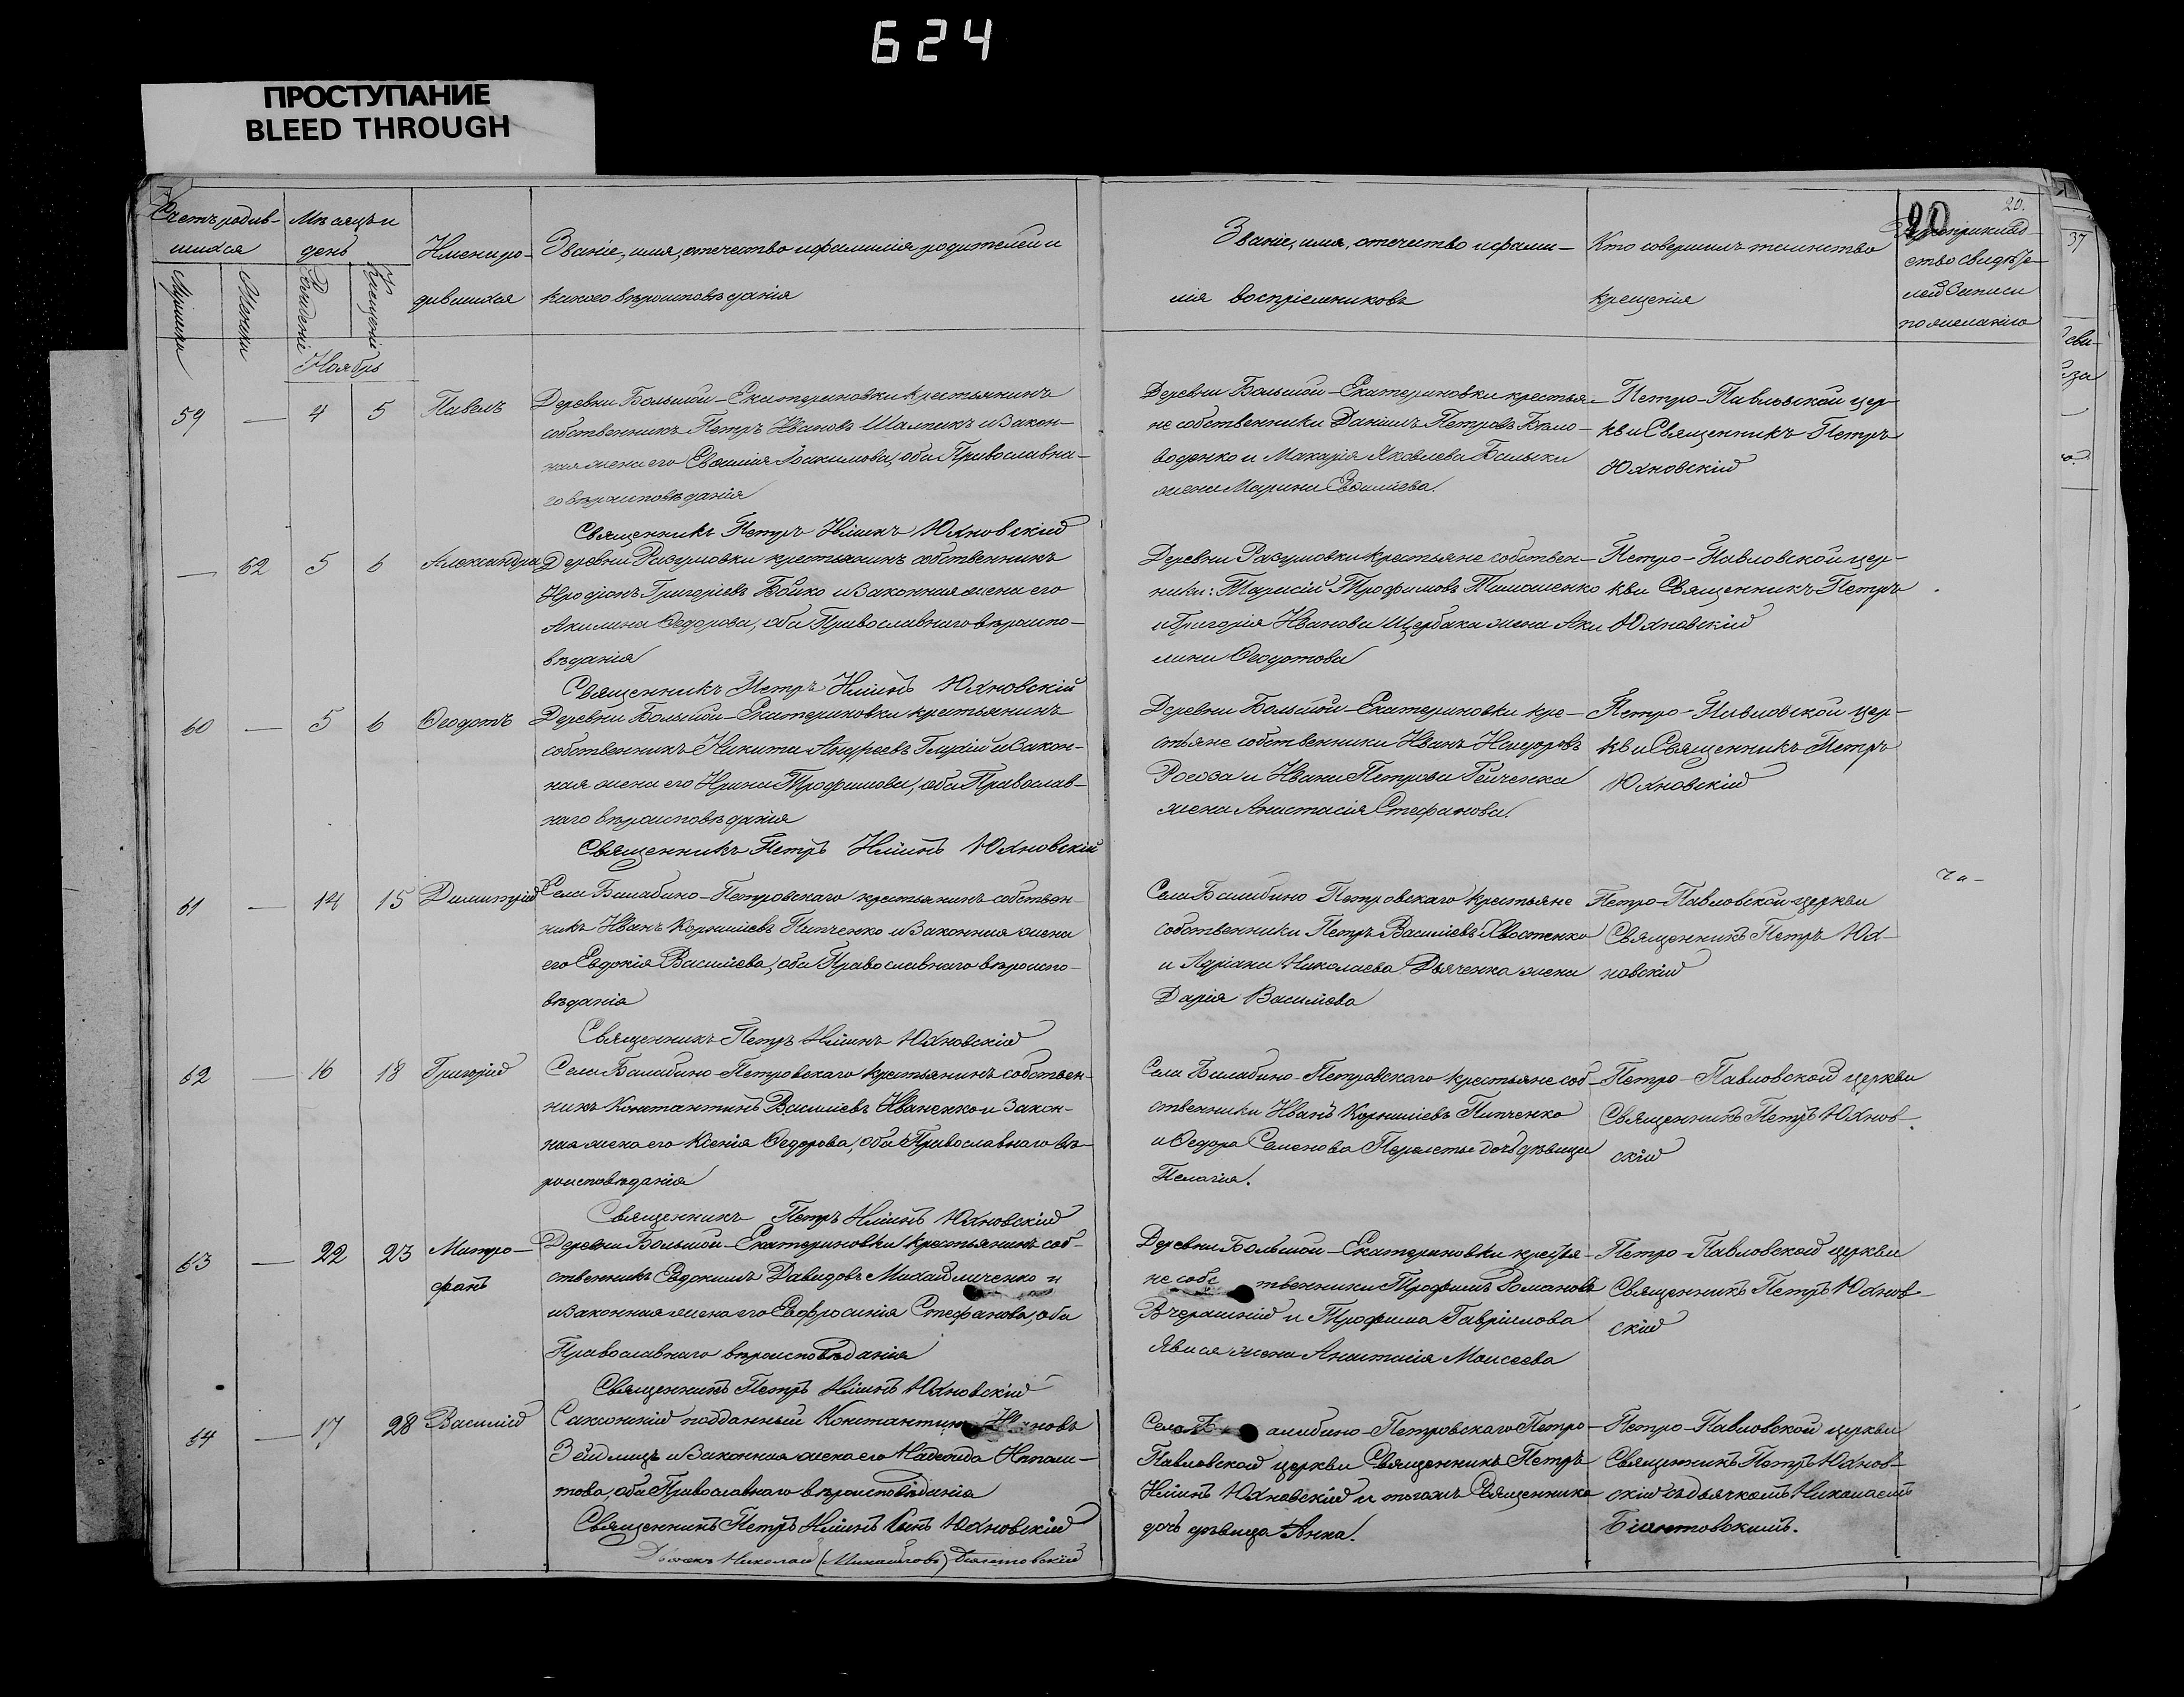 624
ПРОСТУПАНИЕ
BLEED THROUGH
20.
20
37
Счетъ родив-
шихся
Мѣсяцъ и
день
Имена ро-
дившихся
Званіе, имя, отечество и фамилія родителей и
какого вѣроисповѣданія
Званіе, имя, отечество и фами-
лія воспріемниковъ
Кто совершилъ таинство
крещенія
ство свидѣте-
лей записи
по желанію
Рожденіе
Крещеніе
Ноябрь
59 — 4 5 Павелъ
Деревни Большой-Екатериновки крестьянинъ
собственникъ Петръ Ивановъ и закон-
ная жена его Іоакимова, оба Православна-
го вѣроисповѣданія
Священникъ Петръ Юхновскій
Деревни Большой-Екатериновки крестья-
не собственники Даніилъ Петровъ Бѣло-
воденко и Макарія Яковлева
жена Марина
Петро-Павловской цер-
кви Священникъ Петръ
Юхновскій
— 52 5 6 Александра
Деревни Разумовки крестьянинъ собственникъ
Иродіонъ Григоріевъ Бойко и законная жена его
Акилина Ѳедорова, оба Православнаго вѣроиспо-
вѣданія
Священникъ Петръ Юхновскій
Деревни Разумовки крестьяне собствен-
ники: Тарасій Трофимовъ Тимошенко
и Григорія Иванова Щербака жена Аки
лина Ѳеодотова
Петро-Павловской цер-
кви Священникъ Петръ
Юхновскій
60 — 5 6 Ѳеодотъ
Деревни Большой-Екатериновки крестьянинъ
собственникъ Никита Андреевъ Глухій и закон-
ная жена его Ирина Трофимова, оба Православ-
наго вѣроисповѣданія
Священникъ Петръ Юхновскій
Деревни Большой-Екатериновки кре-
стьяне собственники Иванъ
и Ивана Петрова
жена Анастасія Стефанова.
Петро-Павловской цер-
кви Священникъ Петръ
Юхновскій
61 — 14 15 Димитрій
Села Балабино-Петровскаго крестьянинъ собствен-
никъ Иванъ Корниліевъ Пипченко и законная жена
его Евдокія Василіева, оба Православнаго вѣроиспо-
вѣданія
Священникъ Петръ Юхновскій
Села Балабино Петровскаго крестьяне
собственники Петръ Василіевъ Хвостенко
и Адріана Николаева Дьяченка жена
Дарія Василіева
Петро-Павловской церкви
Священникъ Петръ Юх-
новскій
62 — 16 18 Григорій
Села Балабино-Петровскаго крестьянинъ собствен-
никъ Константинъ Василіевъ Иваненко и закон-
ная жена его Ксенія Ѳедорова, оба Православнаго вѣ-
роисповѣданія
Священникъ Петръ Юхновскій
Села Балабино-Петровскаго крестьяне соб-
ственники Иванъ Корниліевъ Пипченко
и Ѳедора Семенова дочь дѣвица
Пелагія.
Петро-Павловской церкви
Священникъ Петръ Юхнов-
скій
63 — 22 23 Митро-
фанъ
Деревни Большой-Екатериновки крестьянинъ соб-
ственникъ Евдокимъ Давидовъ Михайличенко и
и законная жена его Евфросинія Стефанова, оба
Православнаго вѣроисповѣданія
Священникъ Петръ Юхновскій
Деревни Большой-Екатериновки крестья-
не собственники Трофимъ Романовъ
Вчерашній и Трофима Гавріилова
жена Анастасія Моисеева
Петро-Павловской церкви
Священникъ Петръ Юхнов-
скій
64 — 17 28 Василій
Саксонскій подданный Константинъ
Зейдлицъ и законная жена его Надежда Иппали-
това, оба Православнаго вѣроисповѣданія
Священникъ Петръ Юхновскій
Дьячекъ Николай (Михайловъ) Бѣлятовскій
Села Балабино-Петровскаго Петро-
Павловской церкви Священникъ Петръ
Юхновскій и тогожъ Священника
дочь дѣвица Анна.
Петро-Павловской церкви
Священникъ Петръ Юхнов-
скій съ дьячкомъ Николаемъ